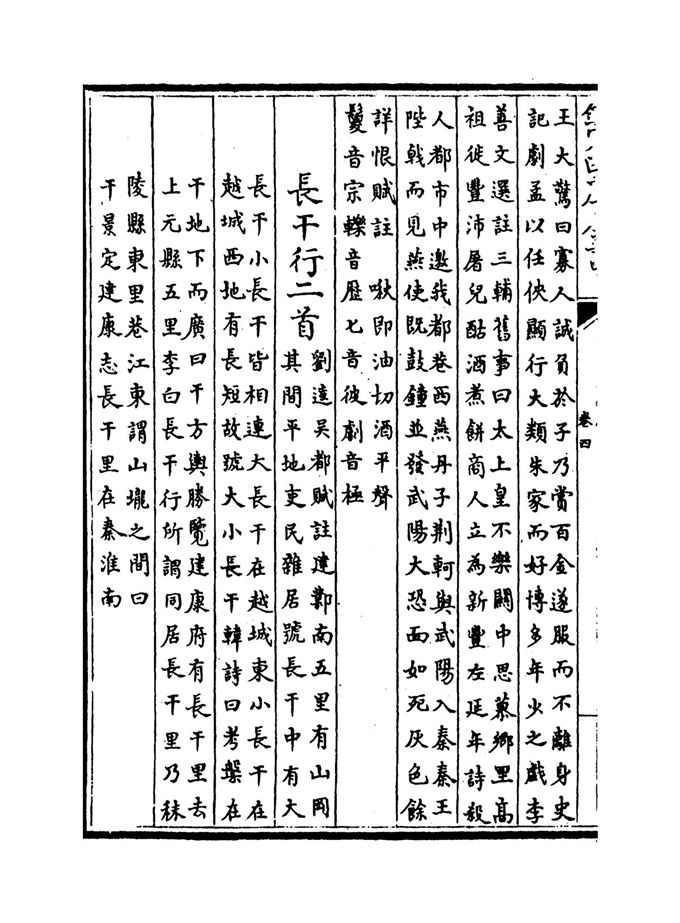 王大驚曰寡人誠負於子乃賞百金遂服而不離身史
記劇孟以任俠顯行大類朱家而好博多年少之戲李
善文選註三輔舊事曰太上皇不樂關中思慕鄉里高
祖徙豐沛屠兒酤酒煮餅商人立為新豐左延年詩殺
人都市中邀我都巷西燕丹子荆軻與武陽入秦秦王
陛戟而見燕使既鼓鐘並發武陽大恐面如死灰色餘
詳恨賦註 啾即油切酒平聲
鬘音宗轢音歷七音彼劇音極
長干行二首
劉逵吳都賦註建鄴南五里有山岡
其間平地吏民雜居號長干中有大
長干小長干皆相連大長干在越城東小長干在
越城西地有長短故號大小長干韓詩曰考槃在
干地下而廣曰干方輿勝覽建康府有長干里去
上元縣五里李白長干行所謂同居長干里乃秣
陵縣東里巷江東謂山壠之間曰
干景定建康志長干里在秦淮南
卷四